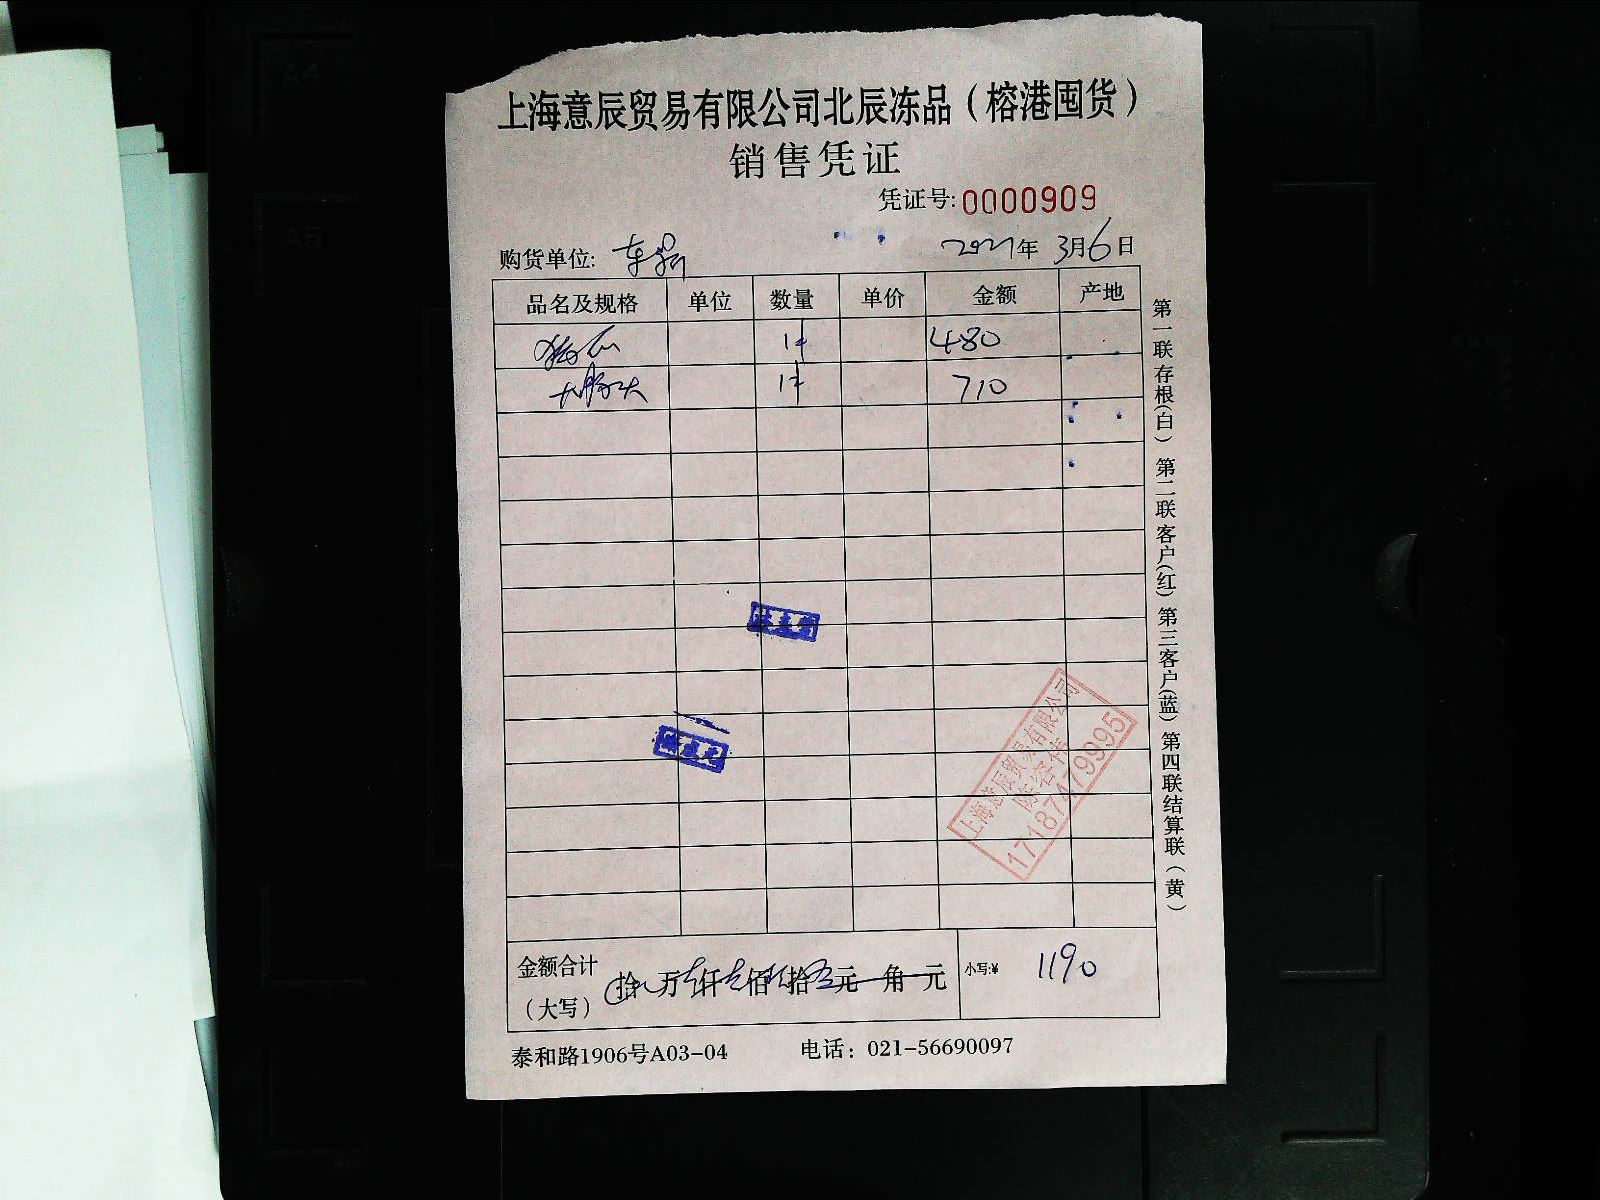 上海意辰贸易有限公司北辰冻品（榕港囤货）
销售凭证
凭证号:0000909
购货单位: 2021年 3月6日
品名及规格 单位 数量 单价 金额 产地
1件 480
大肠头 1件 710
金额合计 拾 万 仟 佰 拾 元 角 元 小写:¥ 1190
（大写）
泰和路1906号A03-04 电话：021-56690097
第一联存根(白) 第二联客户(红) 第三客户(蓝) 第四联结算联(黄)
上海意辰贸易有限公司
17187479995
A4
A5